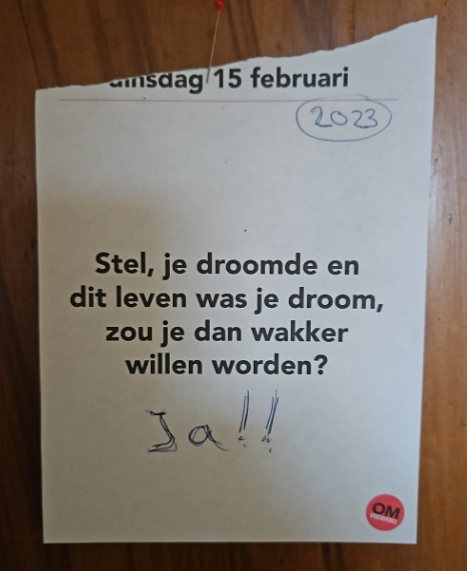 dinsdag 15 februari
2023
Stel, je droomde en
dit leven was je droom,
zou je dan wakker
willen worden?
Ja!!
OM